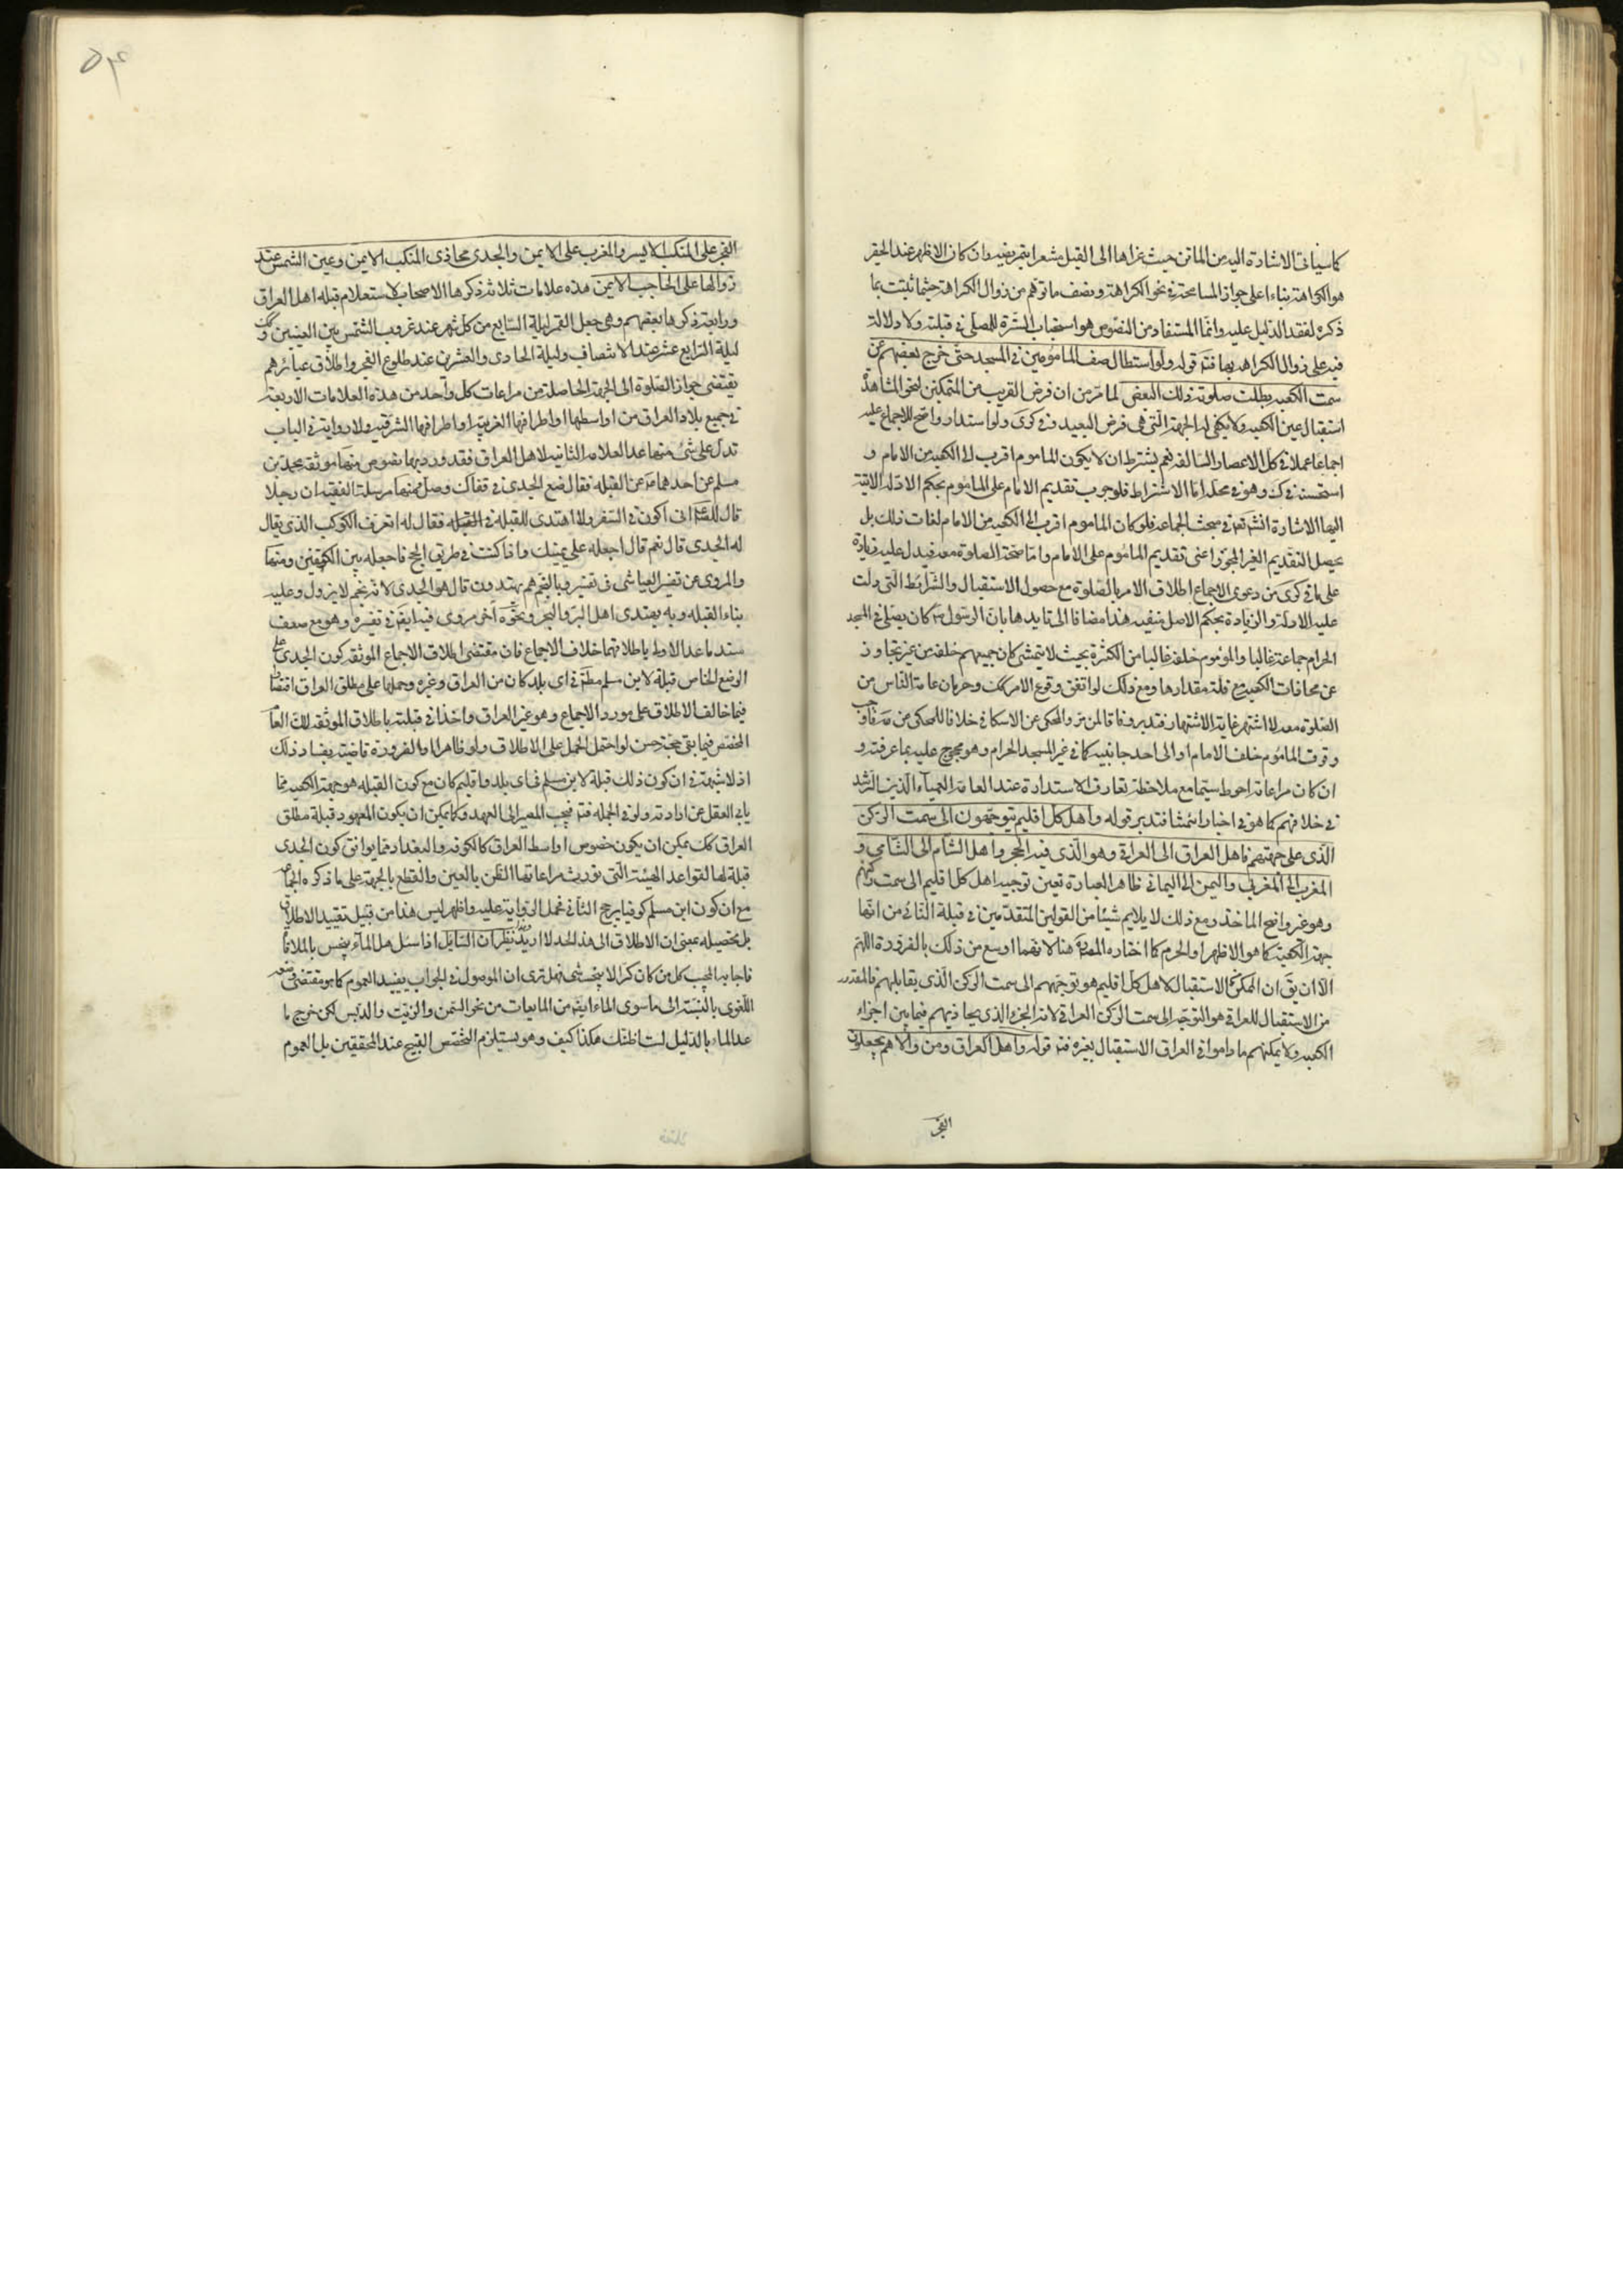 كما سياتى الاشارة اليه من الماتن حيث عزاها الى القيل مشعرا بتمريضه وان كان الاظهر عند الحقير
هو الكراهة بناءا على جواز المسامحة فى نحو الكراهة وضعف ما توهم من زوال الكراهة حيثما ثبتت بما
ذكره لفقد الدليل عليه وانما المستفاد من النصوص هو استحباب السترة للمصلى فى قبلته ولا دلالة
فيه على زوال الكراهة بها فتم قوله ولو استطال صف المامومين فى المسجد حتى خرج بعضهم عن
سمت الكعبه بطلت صلوة ذلك البعض لما مر من ان فرض القريب من المتمكنين لنحو المشاهدة
استقبال عين الكعبه ولا يكفى له الجهة التى هى فرض البعيد وفى كرى ولو استدار واضح للاجماع عليه
اجماعا عملا فى كل الاعصار السالفه نعم يشترط ان لا يكون الماموم اقرب الى الكعبه من الامام و
استحسنه فى ك وهو فى محله اما الاشتراط فلوجوب تقديم الامام على الماموم بحكم الادلة الاتية
اليها الاشارة انش تعه فى مبحث الجماعه فلو كان الماموم اقرب الى الكعبه من الامام لفات ذلك بل
يحصل التقديم الغير المجوز اعنى تقديم الماموم على الامام واما صحة الصلوة معه فيدل عليه زيادة
على ما فى كرى من دعوى الاجماع اطلاق الامر بالصلوة مع حصول الاستقبال والشرائط التى دلت
عليه الادلة والزيادة بحكم الاصل منفيه هذا مضافا الى تايدها بان الرسول ص كان يصلى فى المسجد
الحرام جماعة غالبا والمؤموم خلفه غالبا من الكثرة بحيث لا يتمشى كان جميعهم خلفه من غير تجاوز
عن محاذات الكعبه مع قلة مقدارها ومع ذلك لو اتفق وقوع الامر كك وحرمان عامة الناس من
الصلوة معه لاشتهر غاية الاشتهار فتدبر وفاقا لمن مر والمحكى عن الاسكافى خلافا للمحكى من فاوجب
وقوف الماموم خلف الامام او الى احد جانبيه كما فى غير المسجد الحرام وهو محجوج عليه بما عرفته و
ان كان مراعاته احوط سيما مع ملاحظة تعارف الاستدارة عند العامة العمياء الذين الرشد
فى خلافهم كما هو فى اخبار ائمتنا فتدبر قوله واهل كل اقليم يتوجهون الى سمت الركن
الذى على جهتهم فاهل العراق الى العراقى وهو الذى فيه الحجر واهل الشام الى الشامى و
المغرب الى المغربى واليمن الى اليمانى ظاهر العبارة تعين توجيه اهل كل اقليم الى سمت ركنهم
وهو غير واضح الماخذ ومع ذلك لا يلايم شيئا من القولين المتقدمين فى قبلة النائى من انها
جهة الكعبة كما هو الاظهر او الحرم كما اختاره المصنف هنا لانهما اوسع من ذلك بالضرورة اللهم
الا ان يق ان الممكن الاستقبال لاهل كل اقليم هو توجههم الى سمت الركن الذى يقابلهم فالمقدور
من الاستقبال للعراقى هو التوجه الى سمت الركن العراقى لانه الجزء الذى يحاذيهم فيما بين اجزاء
الكعبه ولا يمكنهم ما داموا فى العراق الاستقبال بغيره فتم قوله واهل العراق ومن والاهم يجعلون
الفجر
الفجر على المنكب الايسر والمغرب على الايمن والجدى محاذى المنكب الايمن وعين الشمس عند
زوالها على الحاجب الايمن هذه علامات ثلاثة ذكرها الاصحاب لاستعلام قبلة اهل العراق
ورابعة ذكرها بعضهم وهى جعل القمر ليلة السابع من كل شهر عند غروب الشمس بين العينين وكك
ليلة الرابع عشر عند الانتصاف وليلة الحادى والعشرين عند طلوع الفجر واطلاق عبائرهم
يقتضى جواز الصلوة الى الجهة الحاصلة من مراعات كل واحد من هذه العلامات الاربعة
فى جميع بلاد العراق من اواسطها او اطرافها الغربية او اطرافها الشرقيه ولا رواية فى الباب
تدل على شئ منها عدا العلامة الثانيه لاهل العراق فقد ورد بها نصوص منها موثقة محمد بن
مسلم عن احدهما ع عن القبله فقال ضع الجدى فى قفاك وصل ومنها مرسلة الفقيه ان رجلا
قال للصادق ع انى اكون فى السفر ولا اهتدى للقبله فى القبله فقال له اتعرف الكوكب الذى يقال
له الجدى قال نعم قال اجعله على يمينك واذا كنت فى طريق الحج فاجعله بين الكتفين ومنها
والمروى عن تفسير العياشى فى تفسير وبالنجم هم يهتدون قال هو الجدى لانه نجم لا يزول وعليه
بناء القبله وبه يهتدى اهل البر والبحر ونحوه اخر مروى فيه ايض فى تفسيره وهو مع ضعف
سند ما عدا الاولى باطلاقهما خلاف الاجماع فان مقتضى اطلاق الاجماع الموثقه كون الجدى على
الوضع الخاص قبلة لابن مسلم مطلقا فى اى بلد كان من العراق وغيره وحملها على مطلق العراق اقتضاء
فيما خالف الاطلاق على مورد الاجماع وهو غير العراق واخذا فى قبلته باطلاق الموثقه لان العام
المخصص فيما بقى حجة حسن لو احتمل الحمل على الاطلاق ولو ظاهرا والضرورة قاضية بفساد ذلك
اذ لا شبهة فى ان كون ذلك قبلة لابن مسلم فى اى بلد واقليم كان مع كون القبله هو جهة الكعبه مما
يابى العقل عن ارادته ولو فى الجمله فتم فيجب المصير الى العهد وكما يمكن ان يكون المعهود قبلة مطلق
العراق كك يمكن ان يكون خصوص اواسط العراق كالكوفة والبغداد مما يوافق كون الجدى
قبلة لها القواعد الهيئة التى يورث مراعاتها الظن بالعين والقطع بالجهة على ما ذكره الجماعة
مع ان كون ابن مسلم كوفيا يرجح الثانى فحمل الرواية عليه واظهر ليس هذا من قبيل تقييد الاطلاق
بل تحصيله بمعنى ان الاطلاق الى هذا الحد لا ازيد نظير ان السائل اذا سئل هل الماء ينجس بالملاقاة
فاجابه المجيب كل من كان كرا لا ينجسه شئ فهل ترى ان الموصول فى الجواب يفيد العموم كما هو مقتضى وضعه
اللغوى بالنسبة الى ما سوى الماء ايضا من المايعات من نحو السمن والزيت والدبس لكن خرج ما
عدا الماء بالدليل لست اظنك هكذا كيف وهو يستلزم التخصص القبيح عند المحققين بل العموم